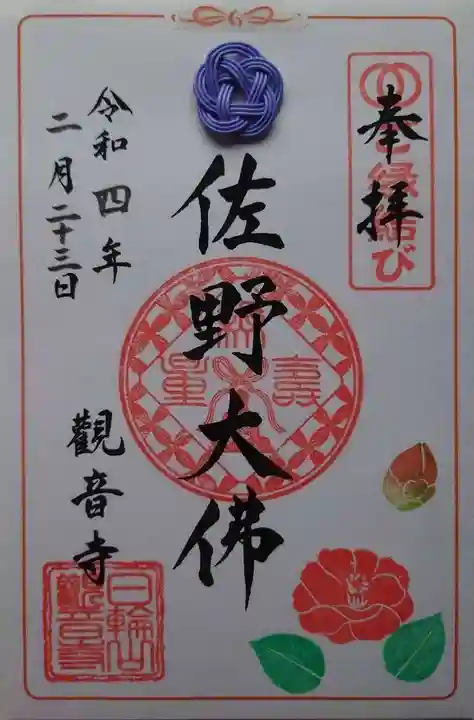 奉拝
ご縁結び
佐野大佛
無量壽
令和四年
二月二十三日
觀音寺
日輪山
觀音寺